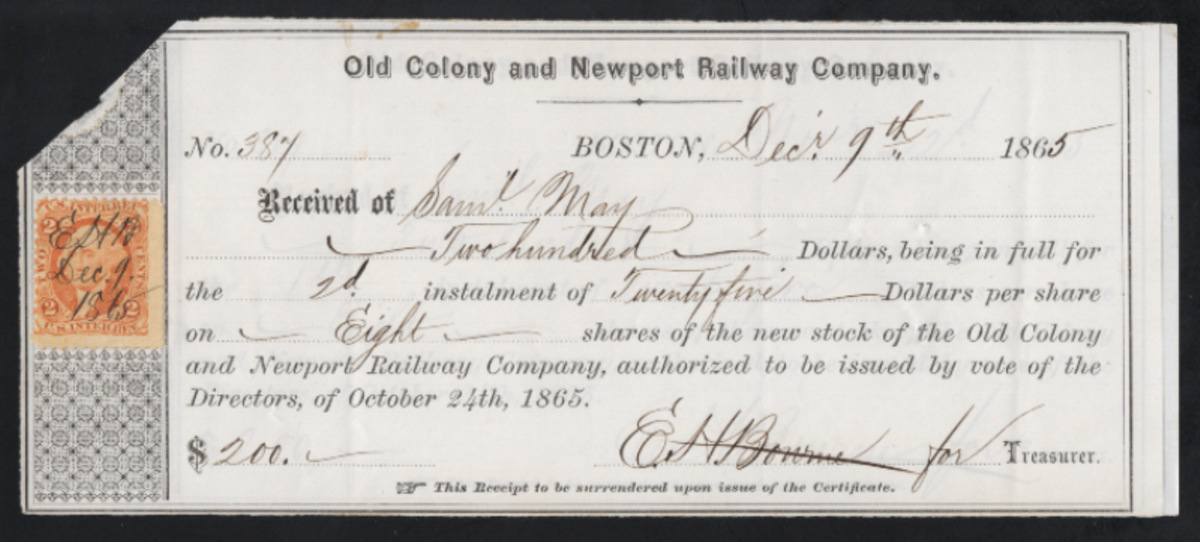 Old Colony and Newport Railway Company.
No. 387 BOSTON, Decr. 9th 1865
Received of Saml. May
Two hundred Dollars, being in full for
the 2d. instalment of Twenty five Dollars per share
on Eight shares of the new stock of the Old Colony
and Newport Railway Company, authorized to be issued by vote of the
Directors, of October 24th, 1865.
$200. E. H. Bourne for Treasurer.
This Receipt to be surrendered upon issue of the Certificate.
U.S. INTER. REV.
E H B
Dec. 9.
1865
2 2
TWO CENTS
U.S. INTER. REV.